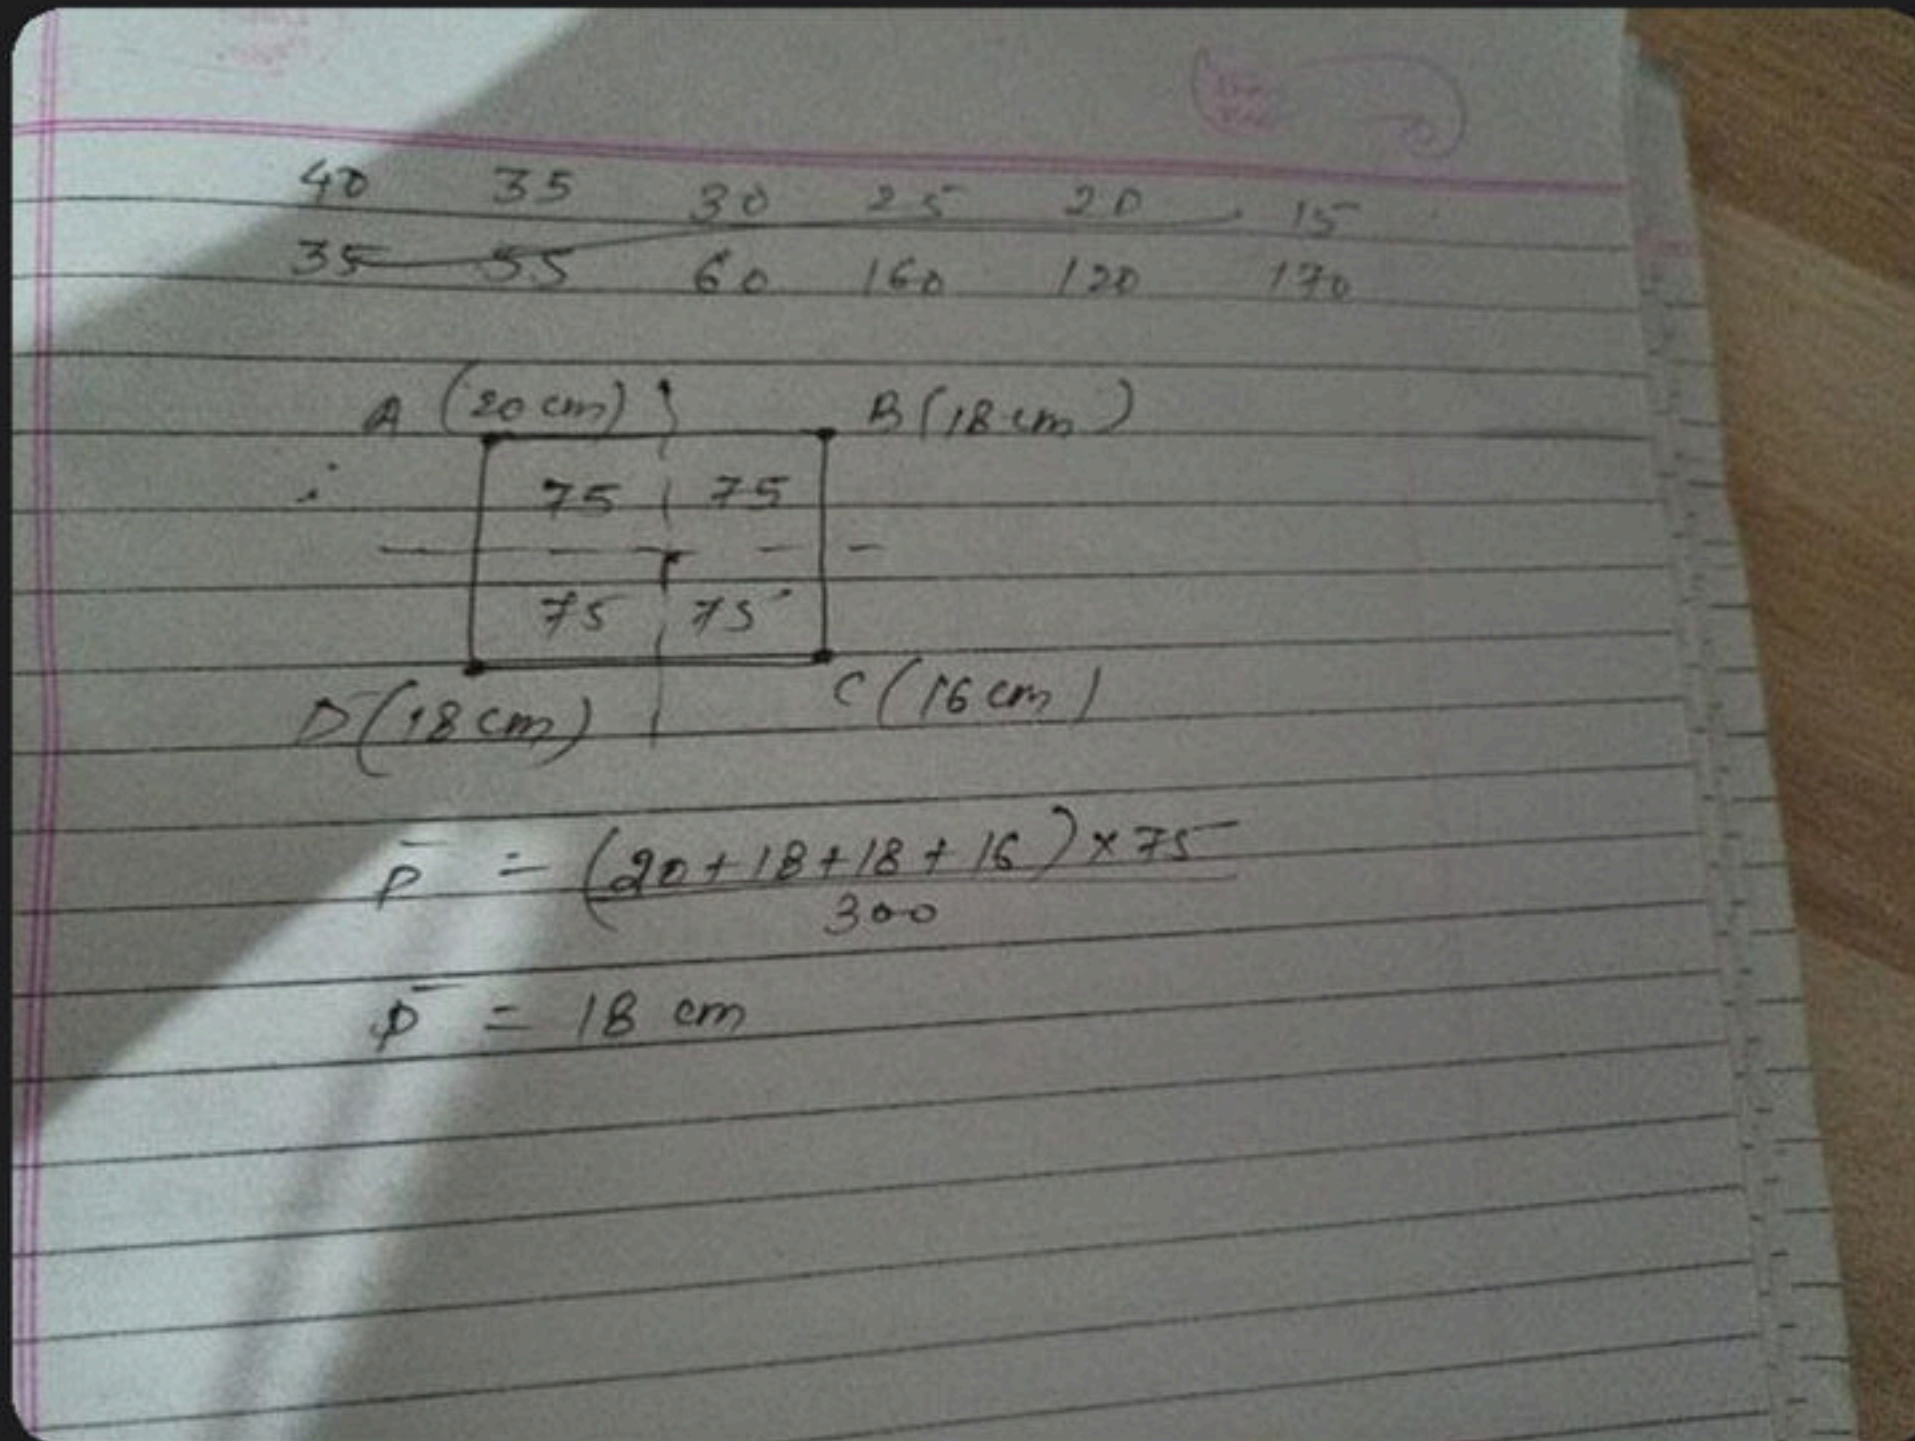 40 35 30 25 20 15
35 55 60 160 120 170
A (20 cm) B (18 cm)
75 75
75 75
D (18 cm) C (16 cm)
P̄ = (20 + 18 + 18 + 16) × 75
300
P̄ = 18 cm